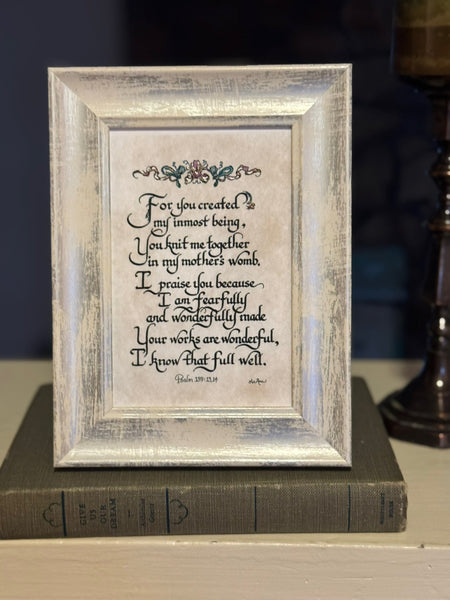 For you created
my inmost being,
You knit me together
in my mother's womb.
I praise you because
I am fearfully
and wonderfully made
Your works are wonderful,
I know that full well.
Psalm 139:13,14
GIVE
US OUR
DREAM